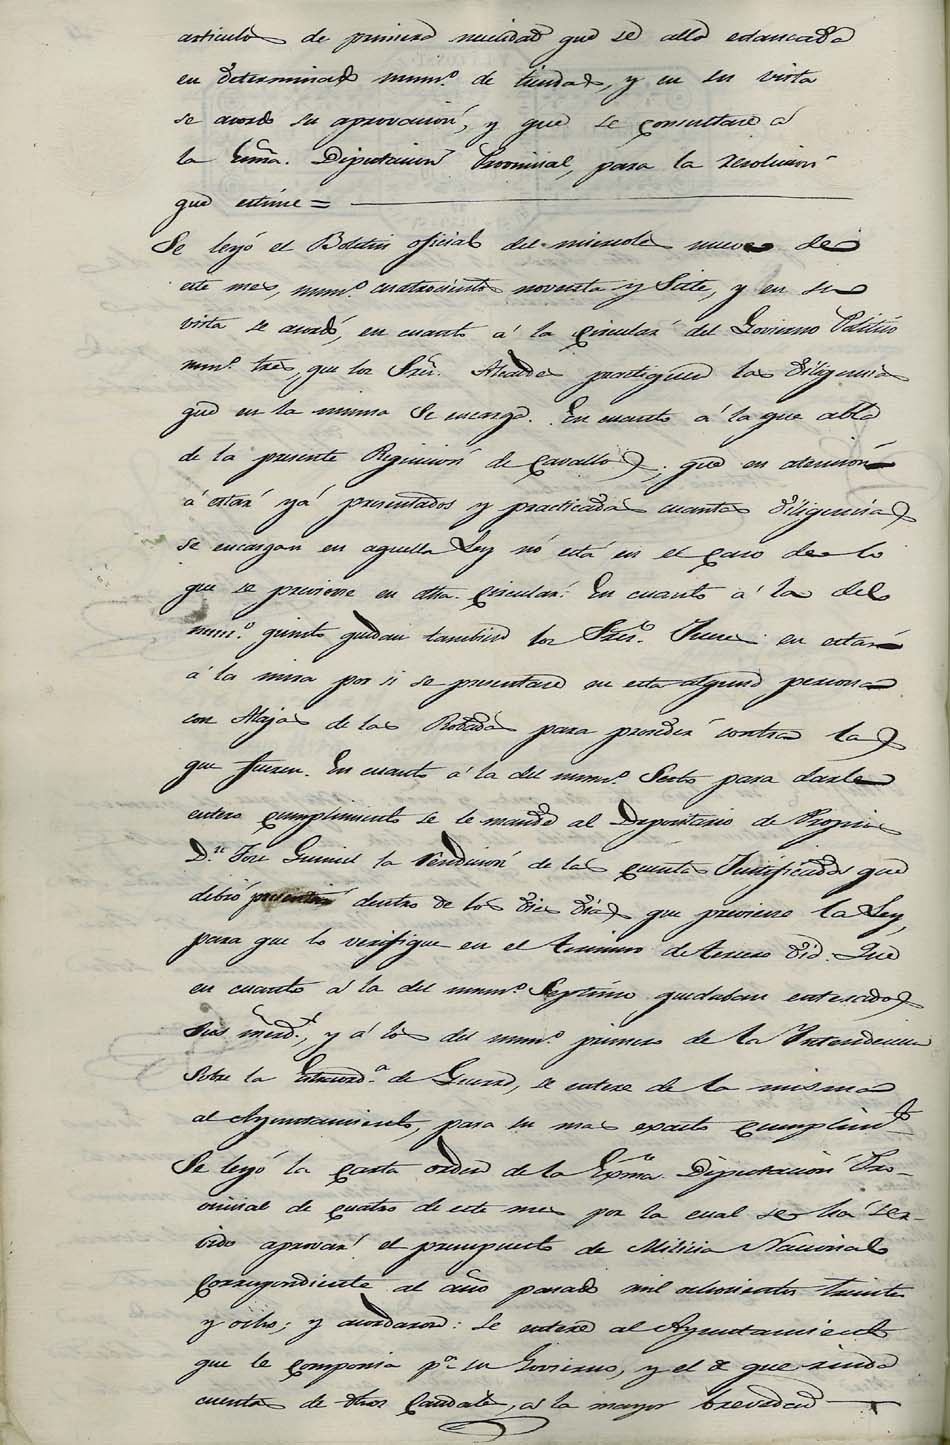 articulos de primera necesidad que se alla estancada
en determinado numº. de tiendas, y en su vista
se acordo su aprovación, y que se consultase á
la Exma. Diputacion Provincial, para la resolucion
que estime =
Se leyó el Boletin oficial del miercoles nueve de
este mes, numº. cuatrocientos noventa y Siete, y en su
vista se acordó, en cuanto á la Circular del Govierno Politico
numº. tres, que los Sres. Alcaldes practiquen las diligencias
que en la misma se encarga. En cuanto á la que abla
de la presente Requicicion de Cavallos; que en atencion
á estar yá presentados y practicadas cuantas diligencias
se encargan en aquella Ley nó está en el caso de lo
que se previene en dha. Circular. En cuanto á la del
numº. quinto quedan tambien los Sres. Jueces en estar
á la mira por si se presentase en esta alguna persona
con Alajas de las Robadas para proceder contra las
que fueren. En cuanto á la del numº. Sesto para darle
entero cumplimiento se le mande al Depositario de Propios
Dn. Jose Guiniel la rendicion de las cuentas Justificadas que
debió presentar dentro de los dies dias que previene la Ley,
para que lo verifique en el termino de tercero dia. Que
en cuanto á la del numº. Septimo quedaban enterados
sus mercds., y á los del numº. primero de la Intendencia
sobre la Estraord.ª de Guerra, se entere de la misma
al Ayuntamiento, para su mas exacto cumplimto.
Se leyó la carta orden de la Exma. Diputacion Pro-
vincial de cuatro de este mes por la cual se há ser-
vido aprovar el presupuesto de Milicia Nacional
Correspondiente al año pasado mil ochocientos treinta
y ocho; y acordaron: Se entere al Ayuntamiento
que le componia pª. su Govierno, y el de que rinda
cuentas de dhos Caudales, á la mayor brevedad